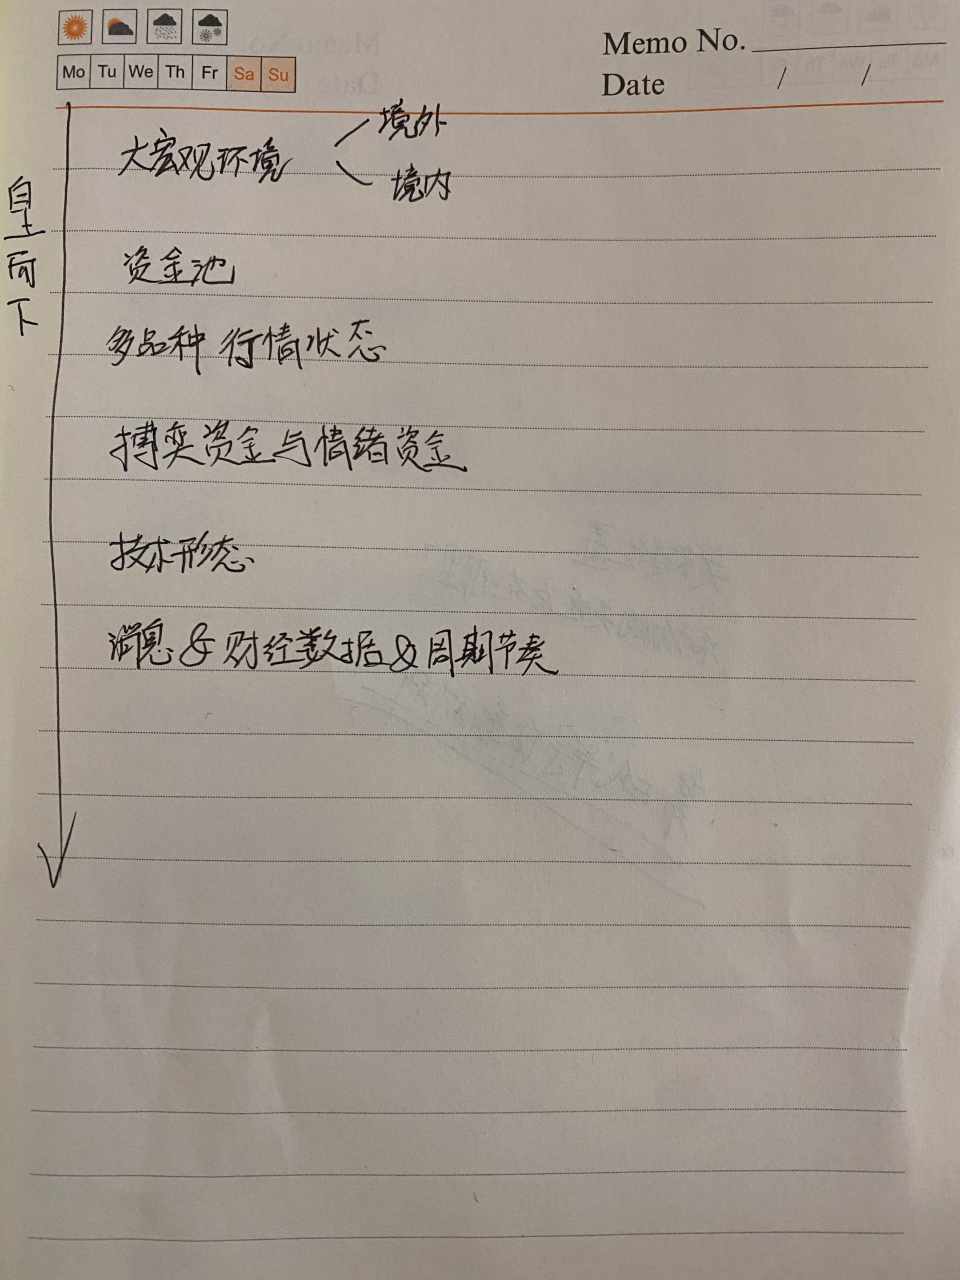 Memo No.
Mo Tu We Th Fr Sa Su
Date / /
自上而下
大宏观环境
境外
境内
资金池
多品种 行情状态
搏奕资金与情绪资金
技术形态
消息 & 财经数据 & 周期节奏